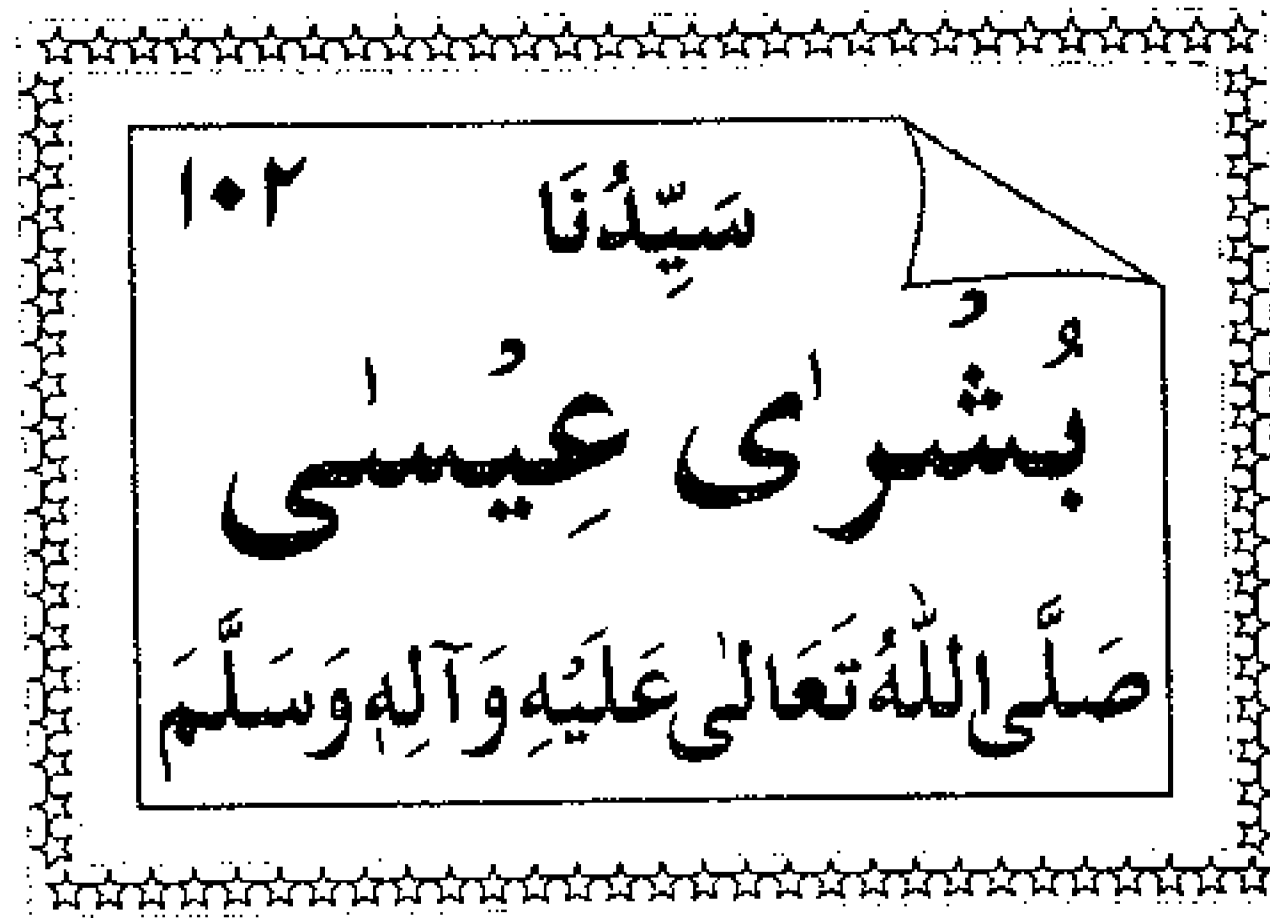 ١٠٢
سَيِّدُنَا
بُشْرٰى عِيْسٰى
صَلَّى اللّٰهُ تَعَالٰى عَلَيْهِ وَآلِهٖ وَسَلَّمَ